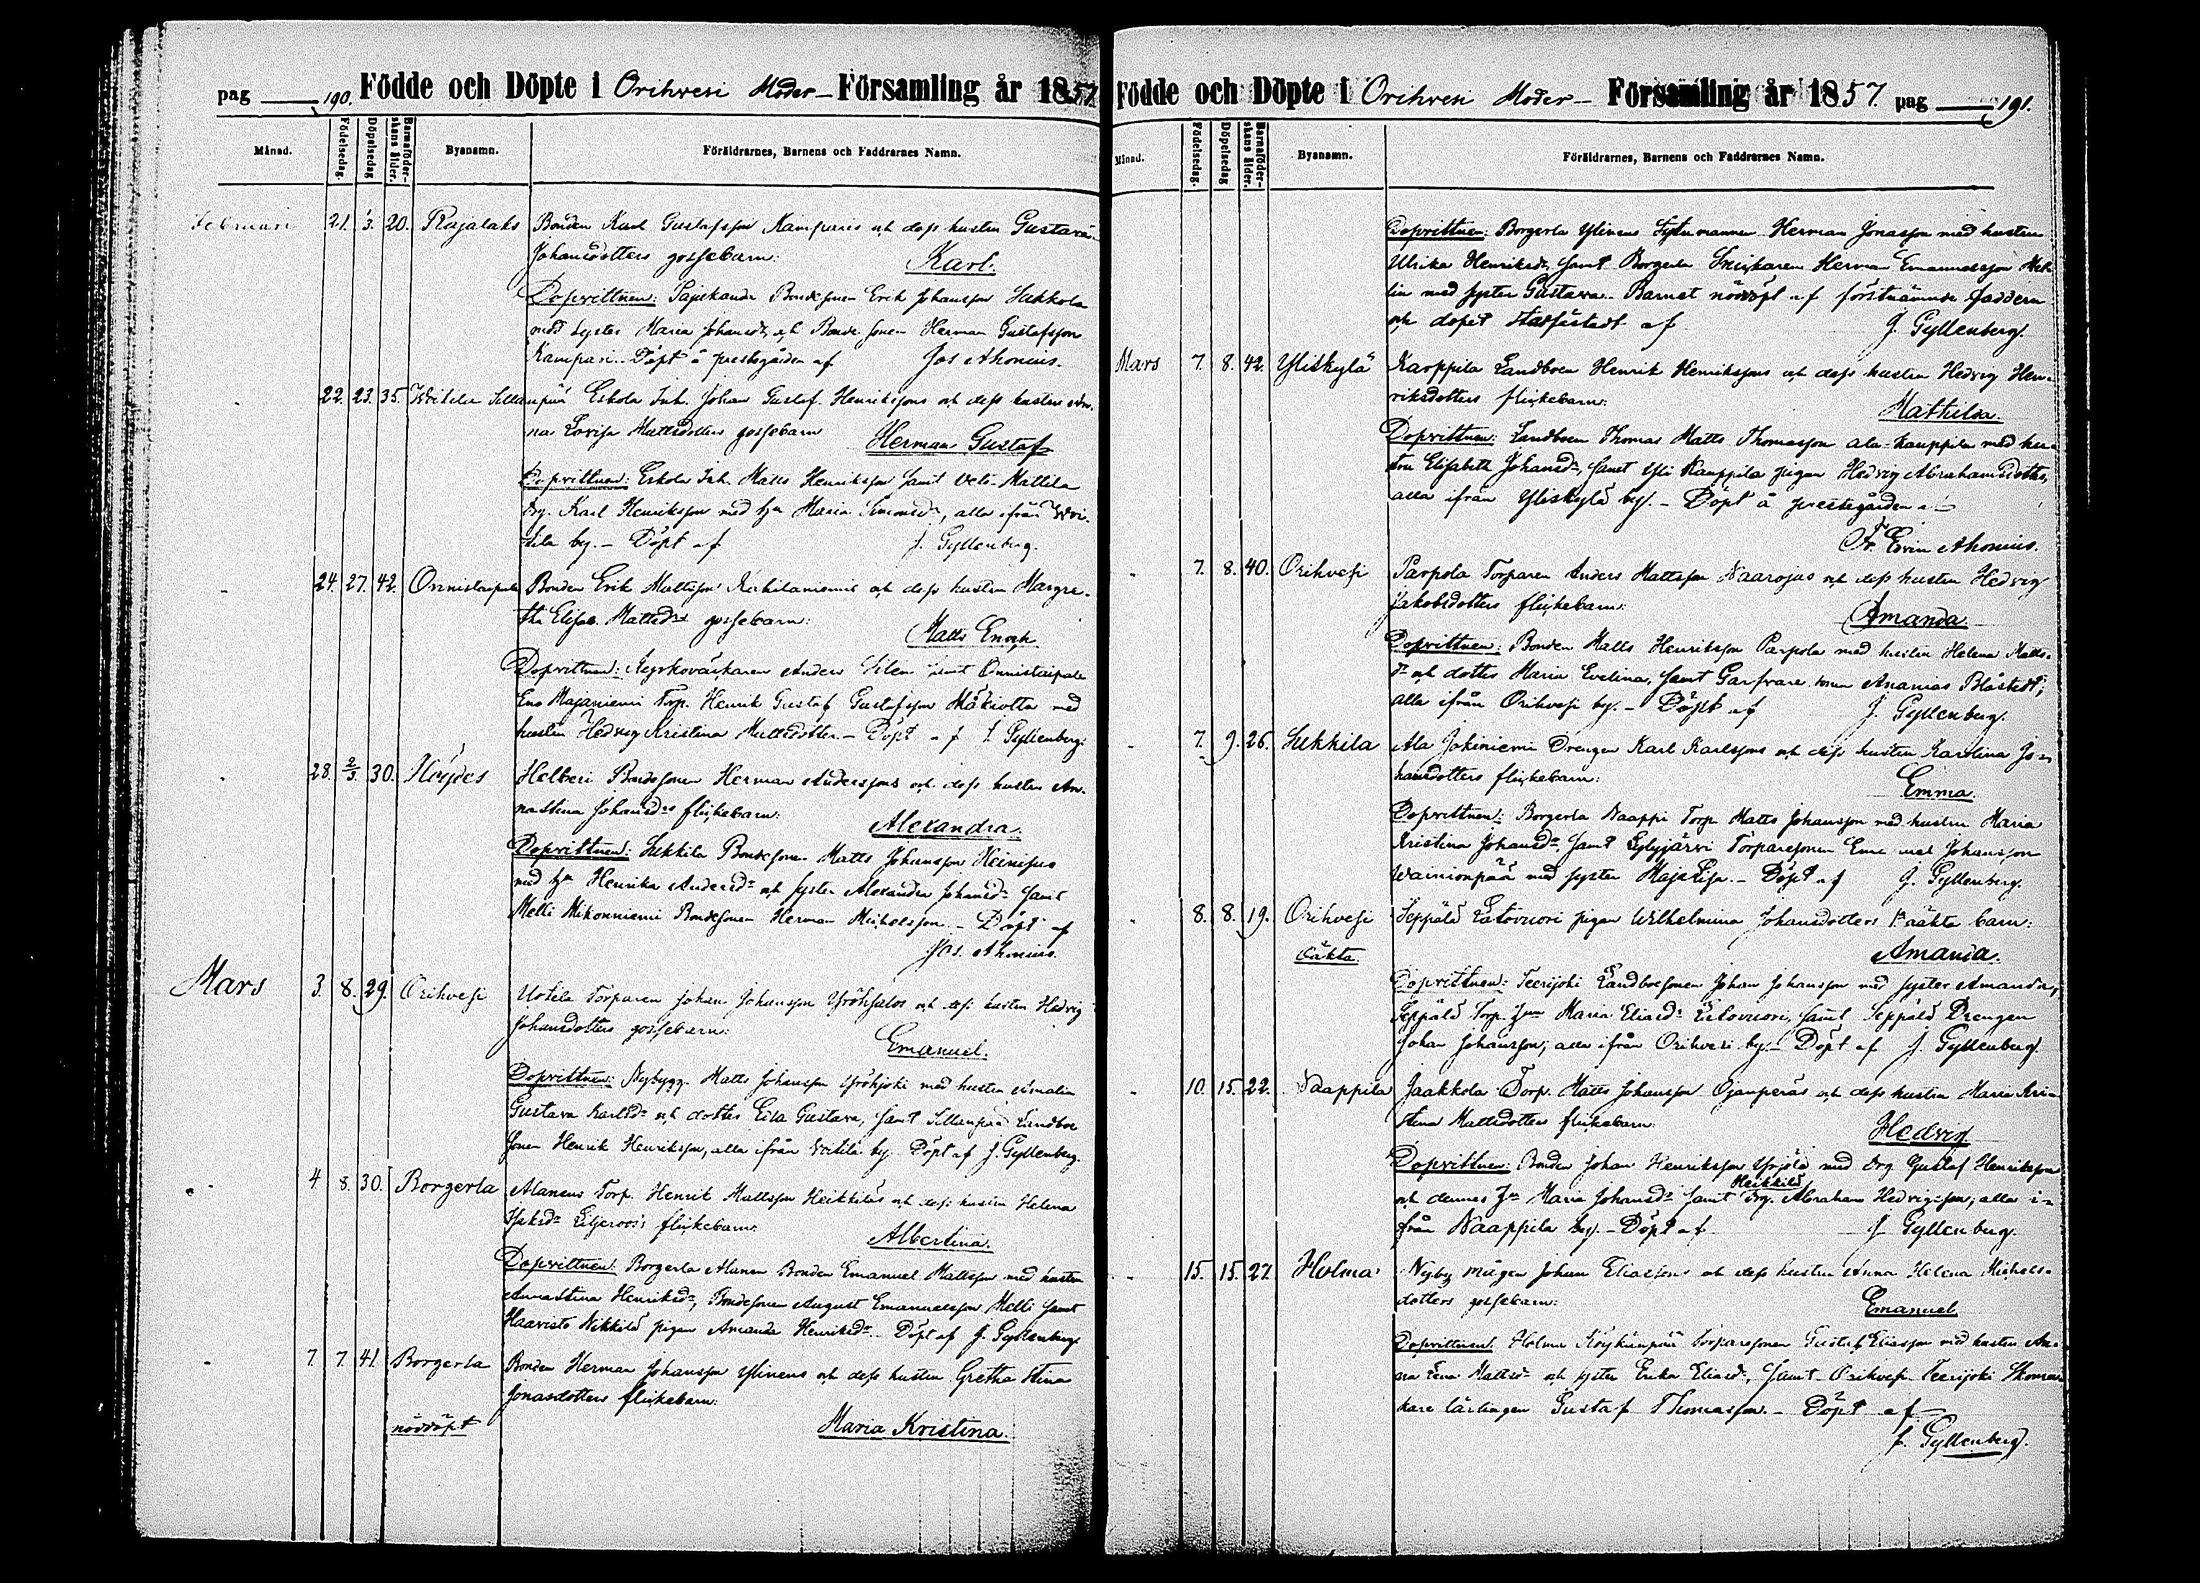 pag 190. Födde och Döpte i Orihvesi Moder- Församling år 1857
Månad. Födelsedag. Döpelsedag Barnaföder-skans ålder. Byanamn. Föräldrarnes, Barnens och Faddrarnes Namn.
Februari 21. 1/3. 20. Rajalaks Bonden Karl Gustafsson Kamparis och dess hustru Gustava
Johansdotters gossebarn: Karl.
Dopvittnen: Bondesonen Erik Johansson Sukkola
med syster Maria Johansdr, och Bonde sonen Herman Gustafsson
Kampari. Döpt å prestegården af Jos Ahonius.
22. 23. 35. Sillanpää Eskola Inh. Johan Gustaf Henrikssons och dess hustru An-
na Lovisa Mattsdotters gossebarn Herman Gustaf
Dopvittnen: Eskola Inh. Matts Henriksson samt Mattila
Drg. Karl Henriksson med hu Maria Simonsdr, alla ifrån Wei-
tila by. - Döpt af J. Gyllenberg.
24. 27. 42. Onnistaipale Bonden Erik Mattsson och dess hustru Margre-
tha Elisab. Mattsdrs gossebarn: Matts Enoch
Dopvittnen: Anders Silen samt Onnistaipale
Eno Majaniemi Torp. Henrik Gustaf Gustafsson Mäkiotta med
hustru Hedvig Kristina Mattsdotter. - Döpt af J. Gyllenberg.
28. 2/3. 30. Höydes Helberi Bondesonen Herman Anderssons och dess hustru An-
nastina Johansdrs flickebarn: Alexandra.
Dopvittnen: Sukkila Bondesonen Matts Johansson Heinijus
med hu Henrika Andersdr och syster Alexandra Johansdr samt
Melli Mikonniemi Bondesonen Herman Michelsson - Döpt af
Jos. Ahonius.
Mars 3. 8. 29. Orihvesi Uotila Torparen Johan Johansson Yröhsalos och dess hustru Hedvig
Johansdotters gossebarn: Emanuel.
Dopvittnen: Nybygg. Matts Johansson Yröhjoki med hustru Amalia
Gustava Karlsdr och dotter Eila Gustava, samt Sillanpää Landboe
sonen Henrik Henriksson, alla ifrån by Döpt af J. Gyllenberg.
4 8. 30. Borgerla Alanens Torp. Henrik Mattsson Heikkiläs och dess hustru Helena
Isaksdr Liljeroos's flickebarn: Albertina.
Dopvittnen: Borgerla Alanen Bonden Emanuel Mattsson med hustru
Annastina Henriksdr, Bondesonen August Emanuelsson Melli samt
Haavisto Nikkilä pigan Amanda Henriksdr. Döpt af J. Gyllenberg.
7. 7. 41. Borgerla Bonden Herman Johansson Ylinens och dess hustru Gretha Stina
Jonasdotters flickebarn:
nöddöpt Maria Kristina.
Födde och Döpte i Orihvesi Moder- Församling år 1857. pag 191.
Månad. Födelsedag. Döpelsedag Barnaföder-skans ålder. Byanamn. Föräldrarnes, Barnens och Faddrarnes Namn.
Dopvittnen: Borgerla Ylinens Herman Jonasson med hustru
Ulrika Henriksdr, samt Borgerla Snickaren Herman Emanuelsson
med syster Gustava. Barnet nöddöpt af förstnämnde faddern
och dopet stadfästadt af J. Gyllenberg.
Mars 7. 8. 42. Yliskylä Karppila Landboen Henrik Henrikssons och dess hustru Hedvig Hen-
riksdotters flickebarn: Mathilda.
Dopvittnen: Landboen Thomas Matts Thomasson ala-Kauppila med hu-
stru Elisabeth Johansdr, samt Yli Kauppila pigan Hedvig Abrahamsdotter,
alla ifrån Yliskylä by. - Döpt å prestegården af
Fr. Ahonius.
7. 8. 40. Orihvesi Parpola Torparen Anders Mattsson Naarojas och dess hustru Hedvig
Jakobsdotters flickebarn: Amanda
Dopvittnen: Bonden Matts Henriksson Parpola med hustru Helena Matts-
dr och dotter Maria Evelina, samt Garfvare Ananias Blåstedt;
alla ifrån Orihvesi by. - Döpt af J. Gyllenberg.
7. 9. 26. Sukkila Ala Jokiniemi Drengen Karl Karlssons och dess hustru Karolina Jo-
hansdotters flickebarn: Emma.
Dopvittnen: Borgerla Naappi Torp. Matts Johansson med hustru Maria
Kristina Johansdr, samt Sylyjärvi Torparesonen Johansson
Wainionpää med syster Maja Lisa. - Döpt af J. Gyllenberg.
8. 8. 19. Orihvesi Seppälä Latovuori pigan Wilhelmina Johansdotters oäkta barn:
oäkta. Amanda.
Dopvittnen: Teerijoki Landboesonen Johan Johansson med syster Amanda,
Seppälä Torp. Maria Eliasdr Latovuori, samt Seppälä Drengen
Johan Johansson, alla ifrån Orihvesi by. - Döpt af J. Gyllenberg.
10. 15. 22. Naappila Jaakkola Torp. Matts Johansson Ojanperäs och dess hustru Maria Kri-
stina Mattsdotters flickebarn: Hedvig
Dopvittnen: Bonden Johan Henriksson Yrjölä med Drg Gustaf Henriksson
och dennes Maria Johansdr samt Heikkilä Drg. Abraham Hedvigsson, alla i-
från Naappila by. - Döpt af J Gyllenberg.
15. 15. 27. Holma Nyby mågen Johan Eliassons och dess hustru Anna Helena Michels-
dotters gossebarn: Emanuel
Dopvittnen: Holma Torparesonen Gustaf Eliasson med hustru An-
na Lena Mattsdr och syster Erika Eliasdr, samt Orihvesi Teerijoki Skoma-
kare lärlingen Gustaf Thomasson. - Döpt af
J. Gyllenberg.